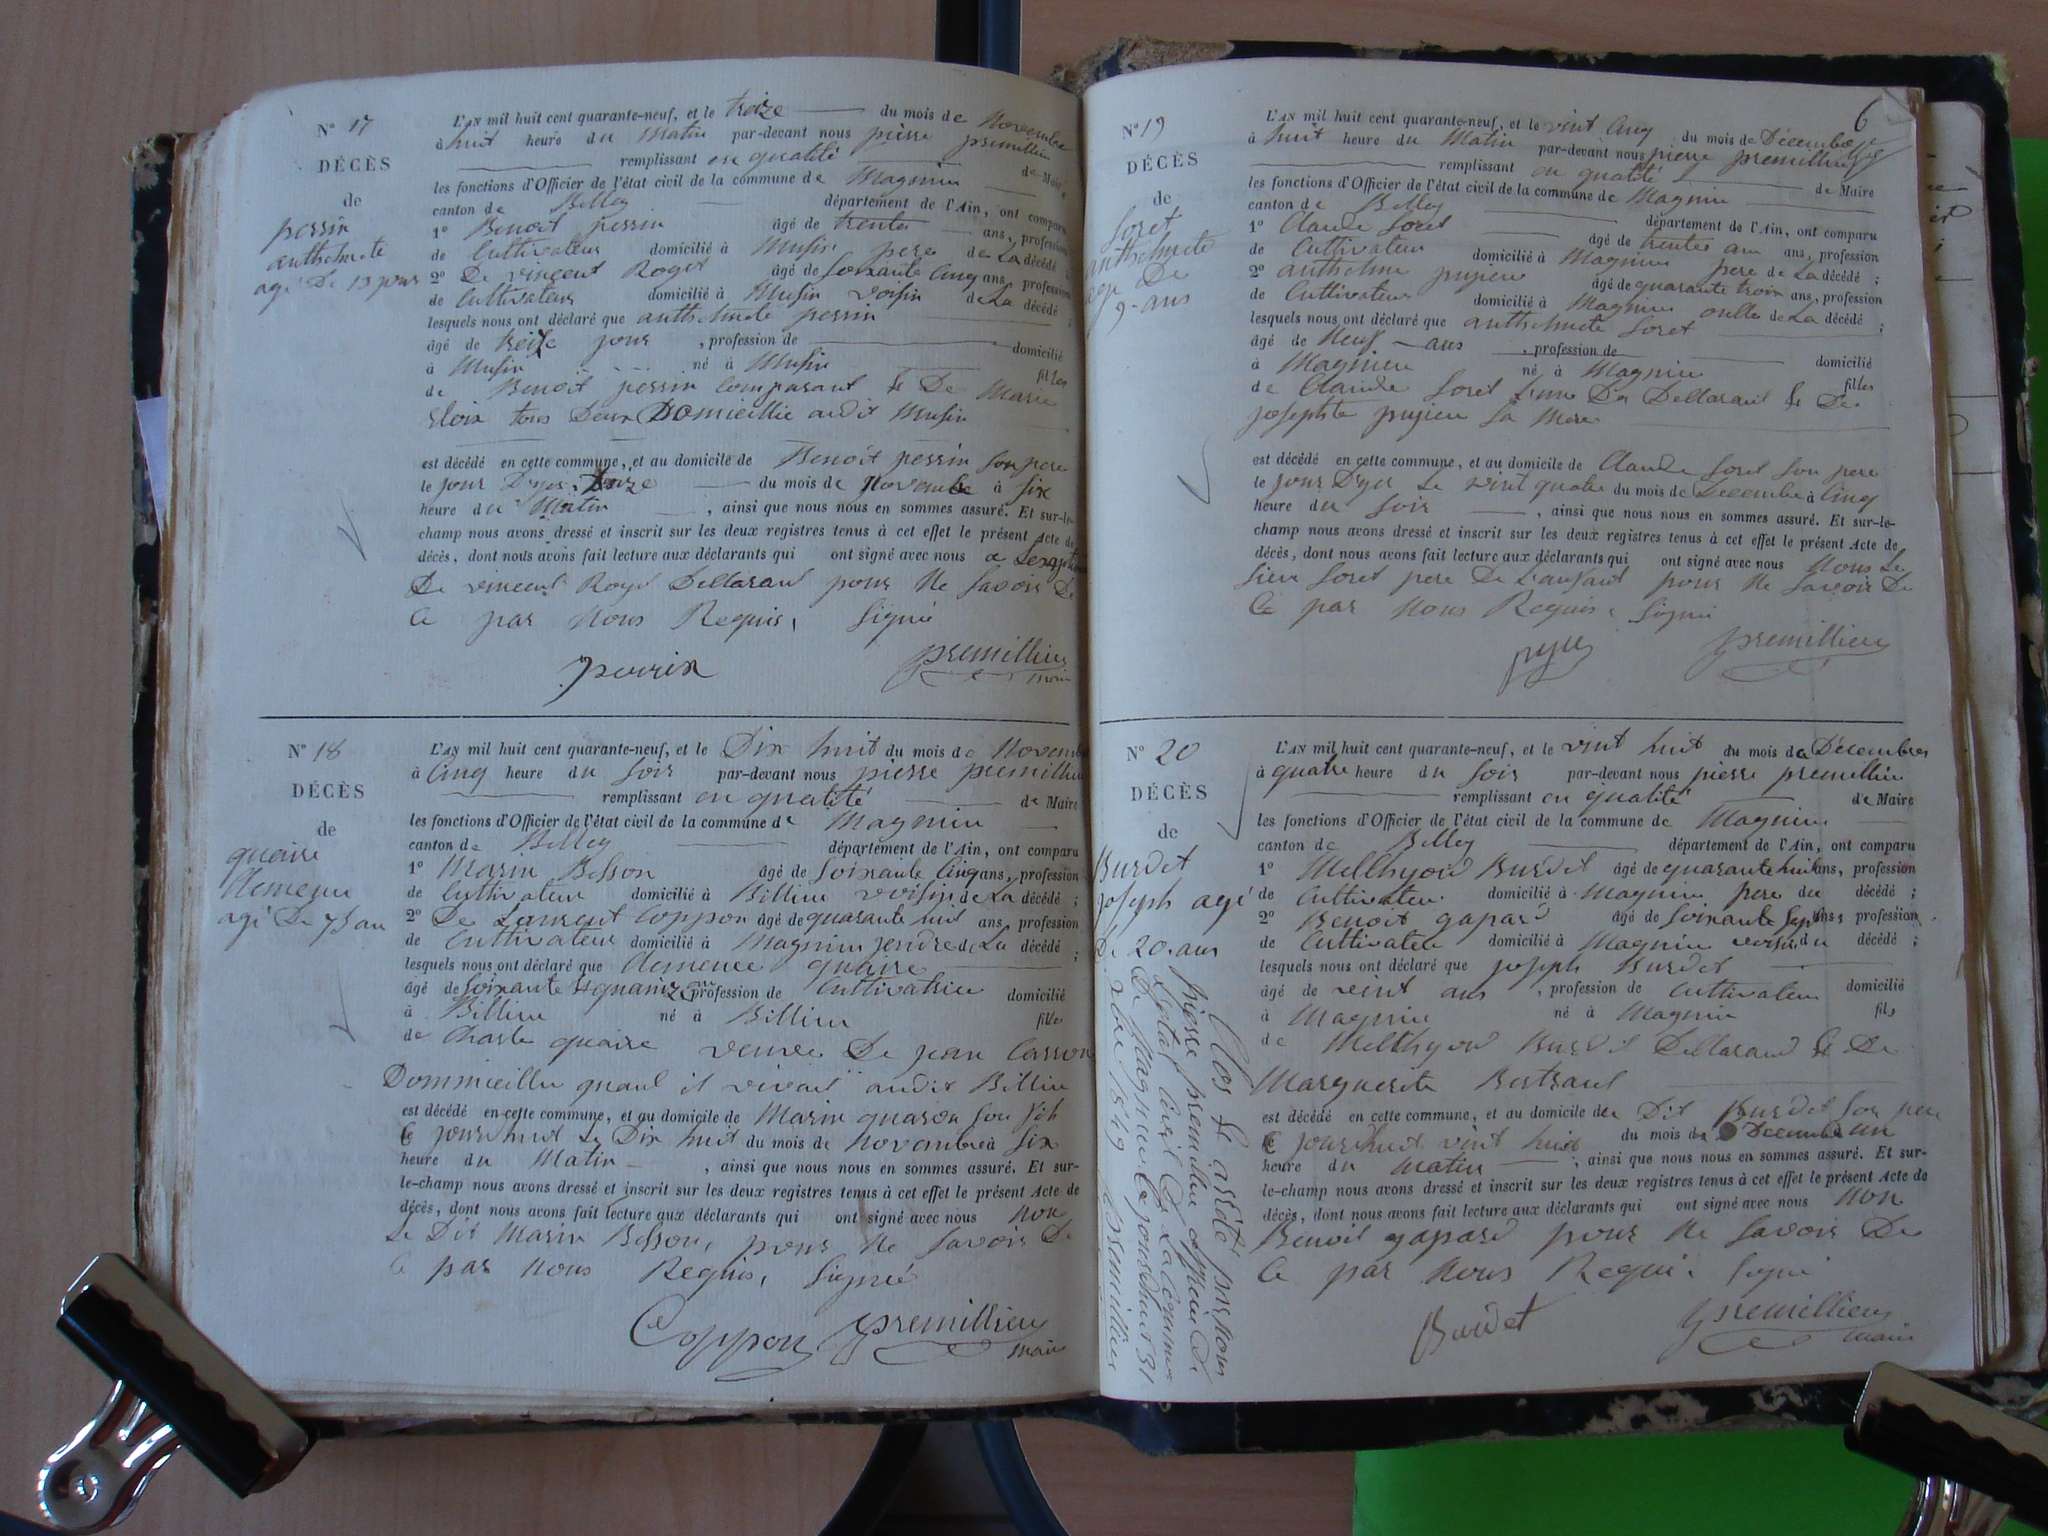 N° 17
DÉCÈS
de
perrin
anthelmete
agé De 13 jours
L'AN mil huit cent quarante-neuf, et le treize du mois de Novembre
à huit heure du Matin par-devant nous pierre premillieu
remplissant en qualité de Maire
les fonctions d'Officier de l'état civil de la commune de Magnieu
canton de Belley département de l'Ain, ont comparu
1° Benoit perrin âgé de trente ans, profession
de Cultivateur domicilié à Musin pere de La décédé ;
2° De vincent Roget âgé de soixante Cinq ans, profession
de Cultivateur domicilié à Musin voisin de La décédé ;
lesquels nous ont déclaré que anthelmete perrin
âgé de treize jour , profession de domicilié
à Musin né à Musin filles
de Benoit perrin Comparant et De Marie
tous Deux Domicillie audit Musin
est décédé en cette commune, et au domicile de Benoit perrin son pere
le jour D'yer treize du mois de Novembre à six
heure du Matin , ainsi que nous nous en sommes assuré. Et sur-le-
champ nous avons dressé et inscrit sur les deux registres tenus à cet effet le présent Acte de
décès, dont nous avons fait lecture aux déclarants qui ont signé avec nous
De vincent Roget Dellarant pour Ne savoir De
Ce par Nous Requis, Signé
perrin premillieu
maire
N° 18
DÉCÈS
de
quaire
Clemence
agé De 75 an
L'AN mil huit cent quarante-neuf, et le Dix huit du mois de Novembre
à Cinq heure du soir par-devant nous pierre premillieu
remplissant en qualité de Maire
les fonctions d'Officier de l'état civil de la commune de Magnieu
canton de Belley département de l'Ain, ont comparu
1° Marin Besson âgé de soixante Cinq ans, profession
de Cultivateur domicilié à Billieu voisin de La décédé ;
2° De Laurent Coppon âgé de quarante huit ans, profession
de Cultivateur domicilié à Magnieu jendre de La décédé ;
lesquels nous ont déclaré que Clemence quaire
âgé de soixante et quainze an profession de Cultivatrice domicilié
à Billieu né à Billieu filles
de Charle quaire veuve De jean Casson
Dommicillie quant il vivait audit Billieu
est décédé en cette commune, et au domicile de Marin
le jourdhuit Le Dix huit du mois de Novembre à six
heure du Matin , ainsi que nous nous en sommes assuré. Et sur-
le-champ nous avons dressé et inscrit sur les deux registres tenus à cet effet le présent Acte de
décès, dont nous avons fait lecture aux déclarants qui ont signé avec nous Non
Le Dit Marin Besson, pour Ne savoir De
Ce par Nous Requis, Signé
Coppon premillieu
maire
6
N° 19
DÉCÈS
de
Soret
anthelmete
age De
9 ans
L'AN mil huit cent quarante-neuf, et le vint Cinq du mois de Décembre
à huit heure du Matin par-devant nous pierre premillieu
remplissant en qualité de Maire
les fonctions d'Officier de l'état civil de la commune de Magnieu
canton de Belley département de l'Ain, ont comparu
1° Claude Soret âgé de trente ans, profession
de Cultivateur domicilié à Magnieu pere de La décédé ;
2° anthelme pugieu âgé de quarante trois ans, profession
de Cultivateur domicilié à Magnieu de La décédé ;
lesquels nous ont déclaré que anthelmete Soret
âgé de Neuf ans , profession de domicilié
à Magnieu né à Magnieu filles
de Claude Soret Dellarant et De
josephte pugieu sa Mere
est décédé en cette commune, et au domicile de Claude Soret son pere
le jour Dyer Le vint quatre du mois de Decembre à Cinq
heure du soir , ainsi que nous nous en sommes assuré. Et sur-le-
champ nous avons dressé et inscrit sur les deux registres tenus à cet effet le présent Acte de
décès, dont nous avons fait lecture aux déclarants qui ont signé avec nous Nous Le
sieur Soret pere De L'anfant pour Ne savoir De
Ce par Nous Requis, Signé
premillieu
N° 20
DÉCÈS
de
Burdet
joseph agé
De 20 ans
Clos et arété par nous
pierre premillieu officier De
L'etat Civil De La Commune
De Magnieu Ce jourdhuit 31
1849 premillieu
L'AN mil huit cent quarante-neuf, et le vint huit du mois de Décembre
à quatre heure du soir par-devant nous pierre premillieu
remplissant en qualité de Maire
les fonctions d'Officier de l'état civil de la commune de Magnieu
canton de Belley département de l'Ain, ont comparu
1° Melkyor Burdet âgé de quarante huit ans, profession
de Cultivateur domicilié à Magnieu pere du décédé ;
2° Benoit gapard âgé de soixante sept ans profession
de Cultivateur domicilié à Magnieu voisin du décédé ;
lesquels nous ont déclaré que joseph Burdet
âgé de vint ans , profession de Cultivateur domicilié
à Magnieu né à Magnieu fils
de Melkyor Burdet Dellarant et De
Marguerite Bertrant
est décédé en cette commune, et au domicile du Dit Burdet son pere
le jourdhuit vint huit du mois de Decembre à un
heure du Matin , ainsi que nous nous en sommes assuré. Et sur-
le-champ nous avons dressé et inscrit sur les deux registres tenus à cet effet le présent Acte de
décès, dont nous avons fait lecture aux déclarants qui ont signé avec nous Non
Benoit gapard pour Ne savoir De
Ce par Nous Requi, Signé
Burdet premillieu
maire